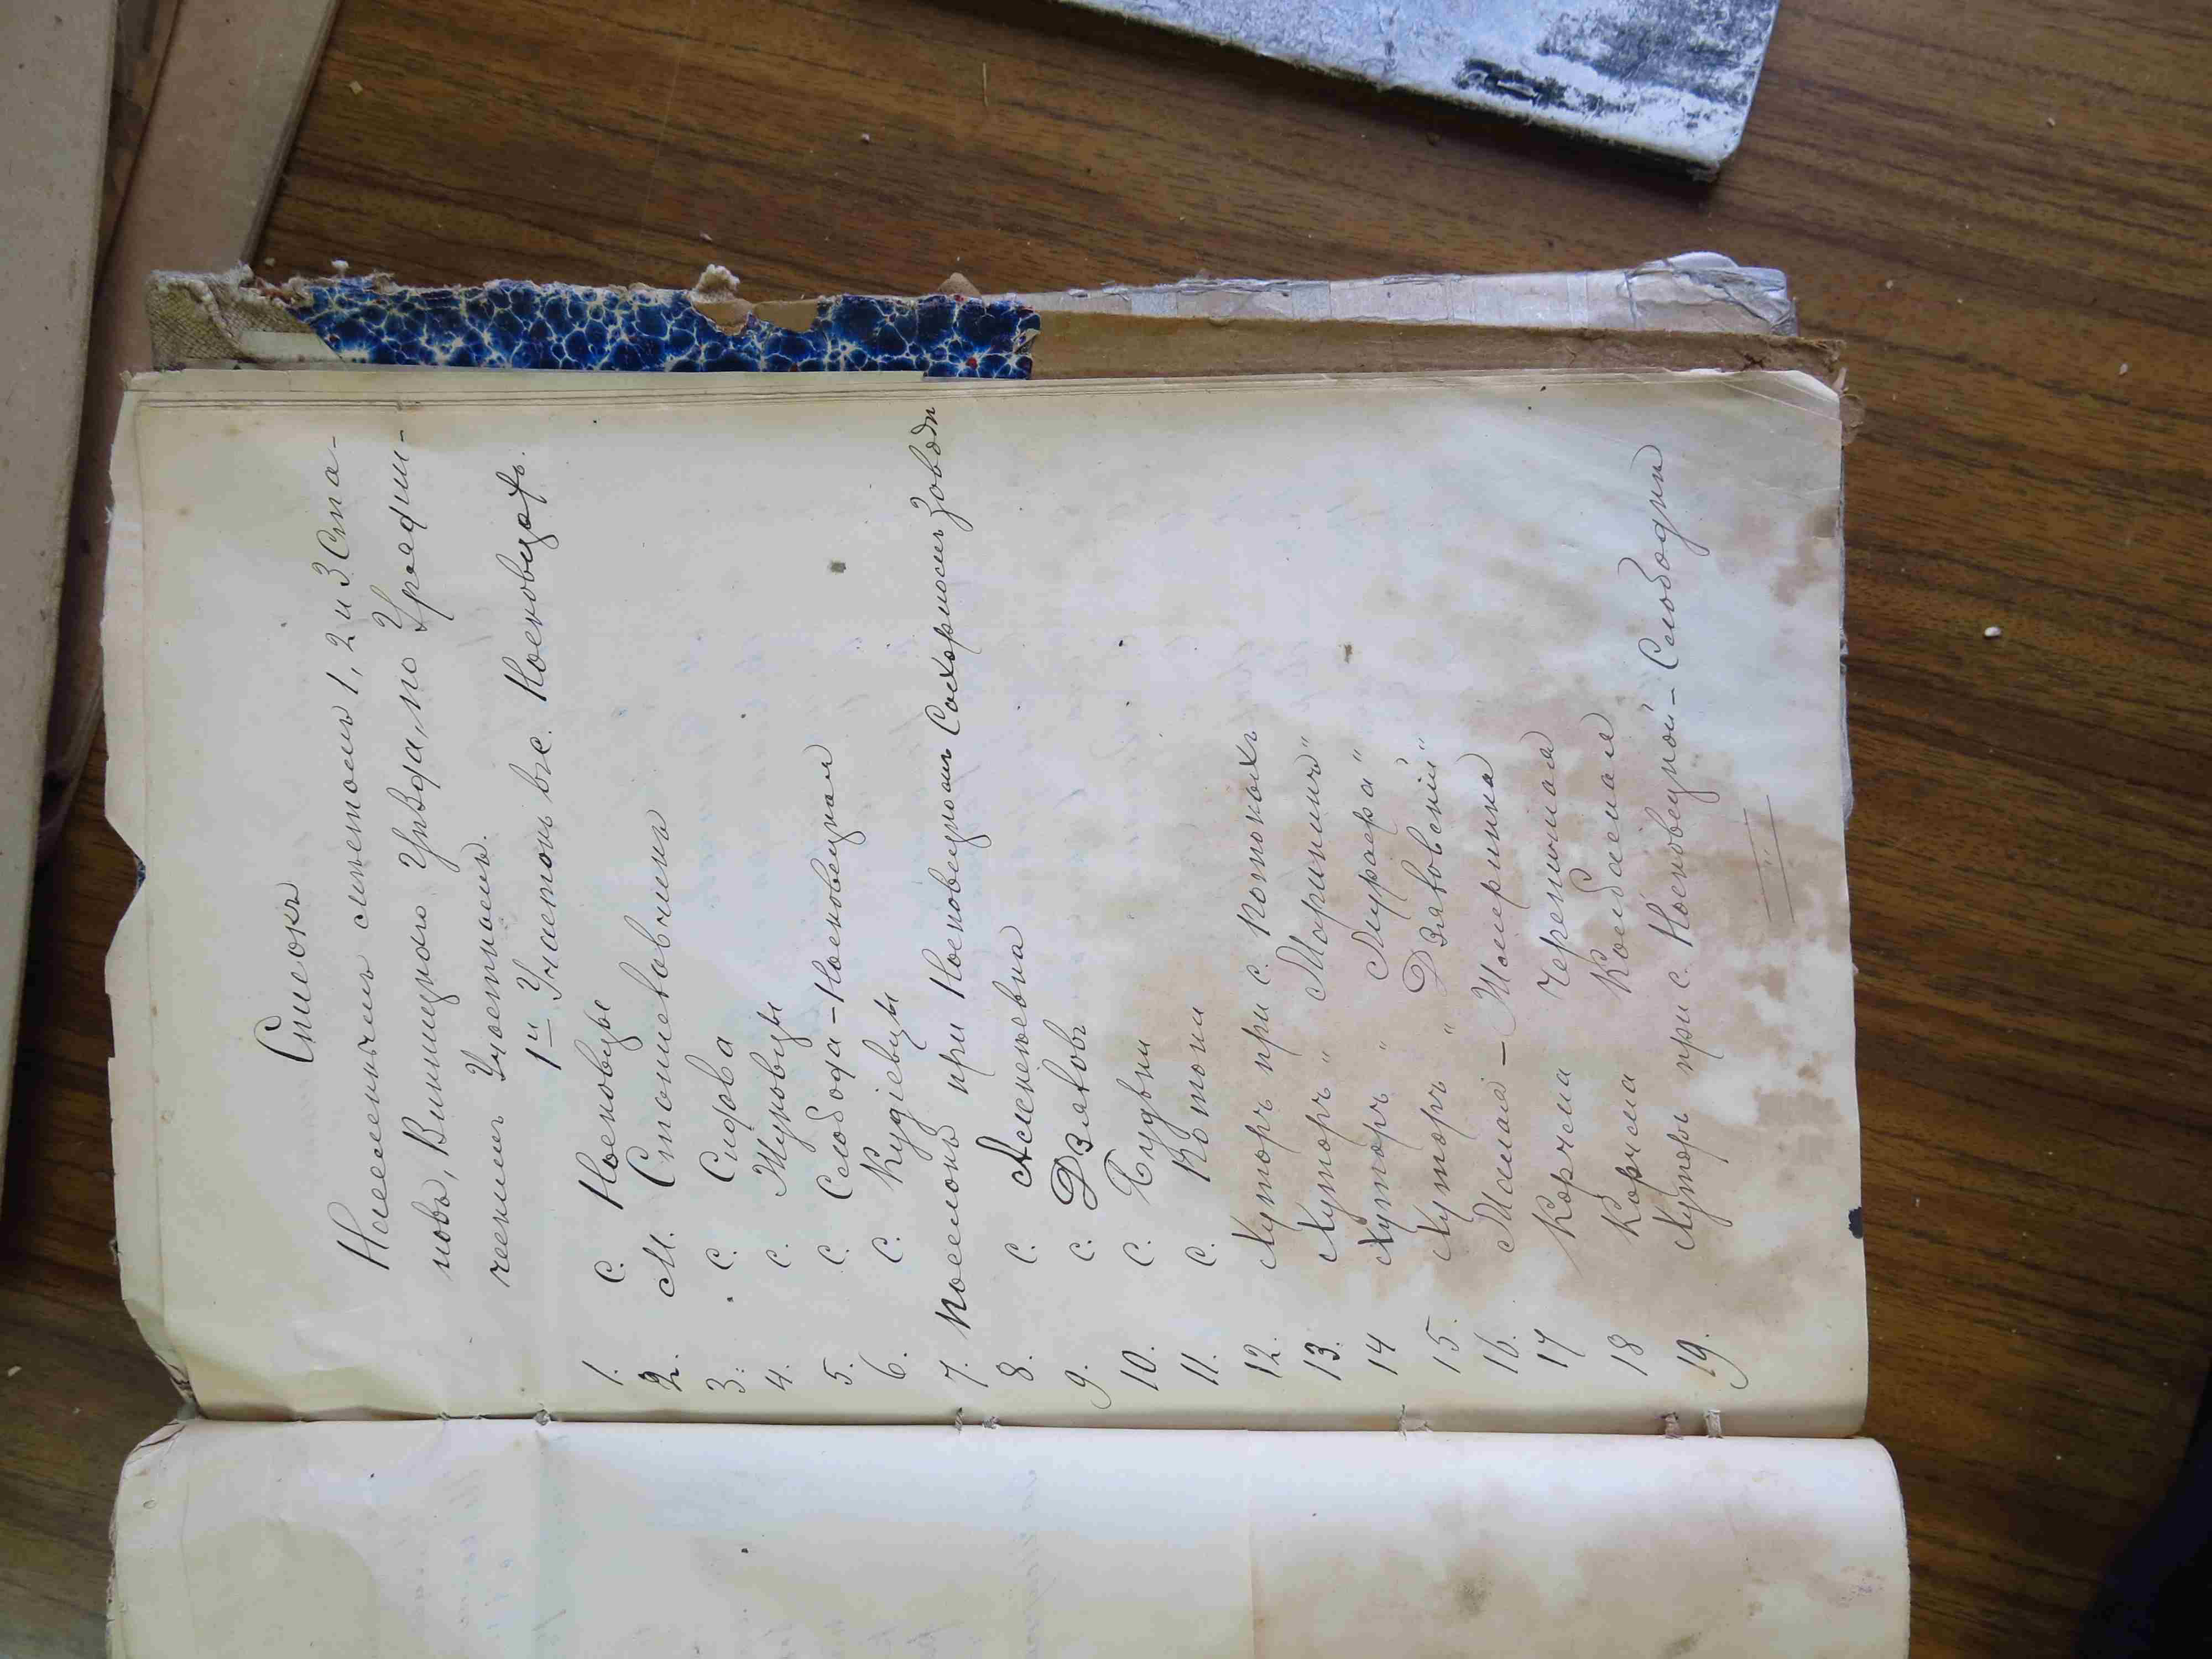 Списокъ
Населеннымъ мѣстомъ 1, 2 и 3 Ста-
новъ, Винницкаго Уѣзда, по Урядни-
ческимъ Участкамъ.
1й Участокъ въ с. Носковцахъ.
1. с. Носковцы
2. м. Станиславчикъ
3. с. Сидова
4. с. Жуковцы
5. с. Слобода-Носковецкая
6. с. Кудіевцы
7. Поселокъ при Носковецкомъ Сахарномъ Заводѣ
8. с. Алексѣевка
9. с. Дзяловъ
10. с. Будьки
11. с. Потоки
12. Хуторъ при с. Потокахъ
13. Хуторъ " Моринищъ "
14 Хуторъ " Мурава "
15. Хуторъ " Дзяловскій "
16. Малая - Жмеринка
17 Корчма Черепишная
18 Корчма Колбасная
19. Хуторъ при с. Носковецкой-Слободки